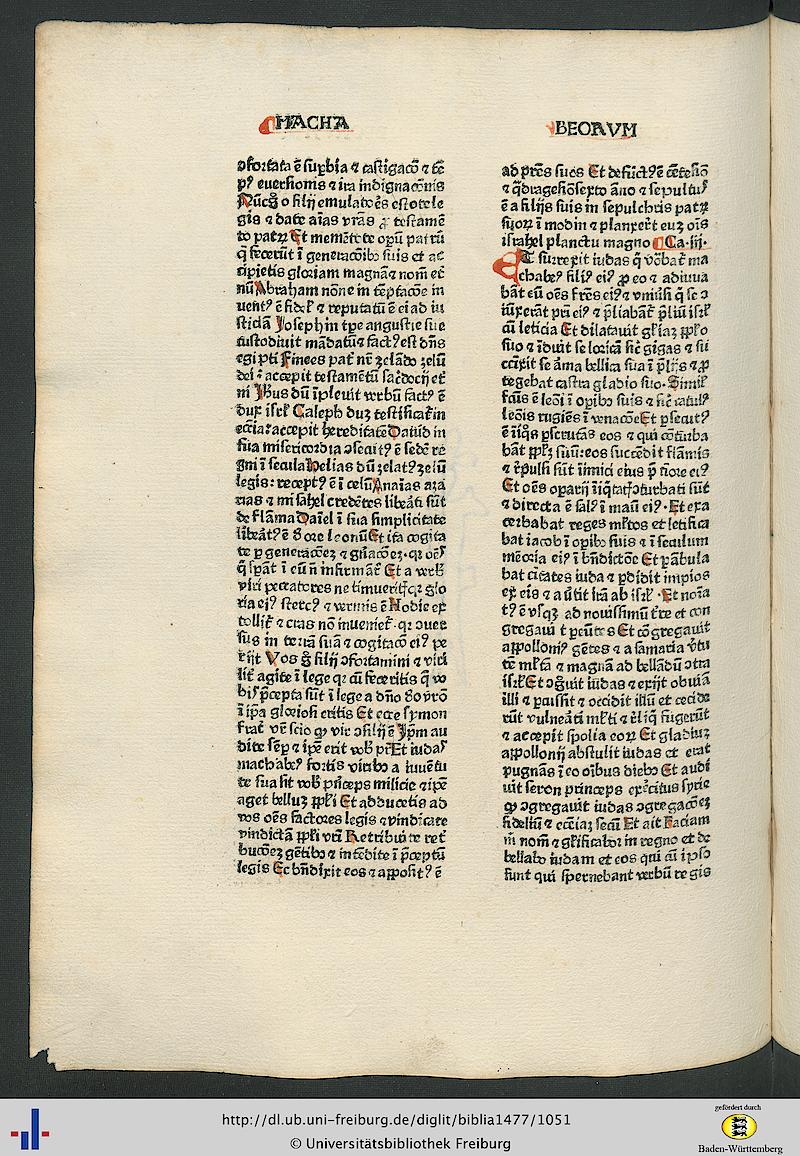 MACHA
ɔfortata ē suꝑbia ⁊ castigacō ⁊ tē
pꝰ euersionis ⁊ ira indignacōnis
Nūc g̊ o filij emulatoēs estote le
gis ⁊ date aīas vrās ꝓ testamē
to patꝝ Et mementote opū patrū
q̄ fecerūt ī generacōibꝰ suis et ac
cipietis gloriam magnā ⁊ nom̄ et̄
nū Abraham nōne in tēptacōe in
uentꝰ ē fidel̄ ⁊ reputatū ē ei ad iu
sticiā Joseph in tpe angustie sue
custodiuit mandatū ⁊ factꝰ est dn̄s
egipti Finees pat̄ nr̄ zelādo zelū
dei : accepit testamētū sac̄docij et̄
ni Jhus dū īpleuit verbū factꝰ ē
dux isrl̄ Caleph duꝫ testificat̄ in
ecc̄ia: accepit hereditatē Dauid in
sua misericordia ɔsecutꝰ ē sedē re
gni ī secula Helias dū zelat ꝰ zelū
legis: receptꝰ ē ī celū Ananias aza
rias ⁊ misahel credētes libeāti sūt
de flāma Daniel ī sua simplicitate
libeātꝰ ē d̄ ore leonū Et ita cogita
te ꝑ generacōeꝫ ⁊ gn̄acōeꝫ· qꝛ oēs
q̄ spāt ī eū n̄ infirmāt̄ Et a verb̄
viri peccatores ne timueritis qꝛ glo
ria eiꝰ stercꝰ ⁊ vermis ē Hodie ex
tollit̄ ⁊ cras nō inueniet̄· qꝛ ɔuer
sus in terrā suā ⁊ cogitacō eiꝰ pe
rijt Vos g̊ filij ɔfortamini ⁊ viri
lit̄ agite ī lege qꝛ cū feceritis q̄ vo
bis p̄cepta sūt ī lege a dno d̄o vrō
ī ip̄a gloriosi eritis Et ecce symon
frat̄ vr̄ scio qꝫ vir ɔsilij ē Jp̄m au
dite semꝑ ⁊ ip̄e erit vob̄ pr̄ Et iudas
machabeꝰ fortis viribꝰ a iuuētu
te sua sit vob̄ prīceps milicie ⁊ ip̄e
aget belluꝫ ppl̄i Et adducetis ad
vos oēs factores legis ⁊ vindicate
vindictā ppl̄i vrī Retribuite ret̄
bucōeꝫ gētibꝰ ⁊ intēdite ī p̄ceptū
legis Et bn̄dixit eos ⁊ apposit ꝰ ē
BEORVM
ad prēs suos Et defūctꝰ ē cētesiō
⁊ q̄dragesiōsexto āno ⁊ sepultus
ē a filijs suis in sepulchris patꝝ
suoꝝ ī modin ⁊ planxer̄t euꝫ oīs
israhel planctu magno Ca· iij·
ET surrexit iudas q̄ vobat̄ ma
chabeꝰ filiꝰ eiꝰ ꝓ eo ⁊ adiuua
bāt eū oēs frēs eiꝰ ⁊ vniūsi q̄ se ɔ
iūxerāt pr̄i eiꝰ ⁊ p̄liabāt̄ p̄liū isrl̄
cū leticia Et dilatauit gl̄iaꝫ ppl̄o
suo ⁊ īduit se loricā sic̄ gigas ⁊ su
ccīxit se arma bellica sua ī p̄lijs ⁊ ꝓ
tegebat castra gladio suo· Simil̄
factus ē leoni ī opibꝰ suis ⁊ sic̄ catulꝰ
leōis rugiēs ī venacōe Et ꝑsecutꝰ
ē iniq̄s ꝑscrutās eos ⁊ qui cōturba
bāt ppl̄ꝫ suū: eos succēdit flāmis
⁊ repulsi sūt īimici eius p̄ timore eiꝰ
Et oēs oparij īiq̄tatꝭ ɔturbati sūt
⁊ directa ē salꝰ ī manu eiꝰ· Et exa
cerbabat reges ml̄tos et letifica
bat iacob ī opibꝰ suis ⁊ ī seculum
mēoria eiꝰ ī bn̄dictōe Et ꝑābula
bat citates iuda ⁊ ꝑdidit impios
ex eis ⁊ auertit irā ab isrl̄ · Et noīa
tꝰ ē vsqꝫ ad nouissimū tr̄e et con
gregauit ꝑeūtes Et cōgregauit
appolloniꝰ gētes ⁊ a samaria v̄tu
tē ml̄tā ⁊ magnā ad bellādū ɔtra
isrl̄ Et ɔgn̄uit iudas ⁊ exijt obuiā
illi ⁊ ꝑcussit ⁊ occidit illū et cecide
rūt vulneāti ml̄ti ⁊ reliq̄ fugerūt
⁊ accepit spolia eoꝝ Et gladiuꝫ
appollonij abstulit iudas et erat
pugnās ī eo oībus diebꝰ Et audi
uit seron princeps exercitus syrie
qꝫ ɔgregauit iudas ɔgregacōeꝫ
fideliū ⁊ ecc̄iaꝫ secū Et ait Faciam
m̄ nom̄ ⁊ gl̄ificabor in regno et de
bellabo iudam et eos qui cū ipso
sunt qui spernebant verbū regis
http://dl.ub.uni-freiburg.de/diglit/biblia1477/1051
© Universitätsbibliothek Freiburg
gefördert durch
Baden-Württemberg